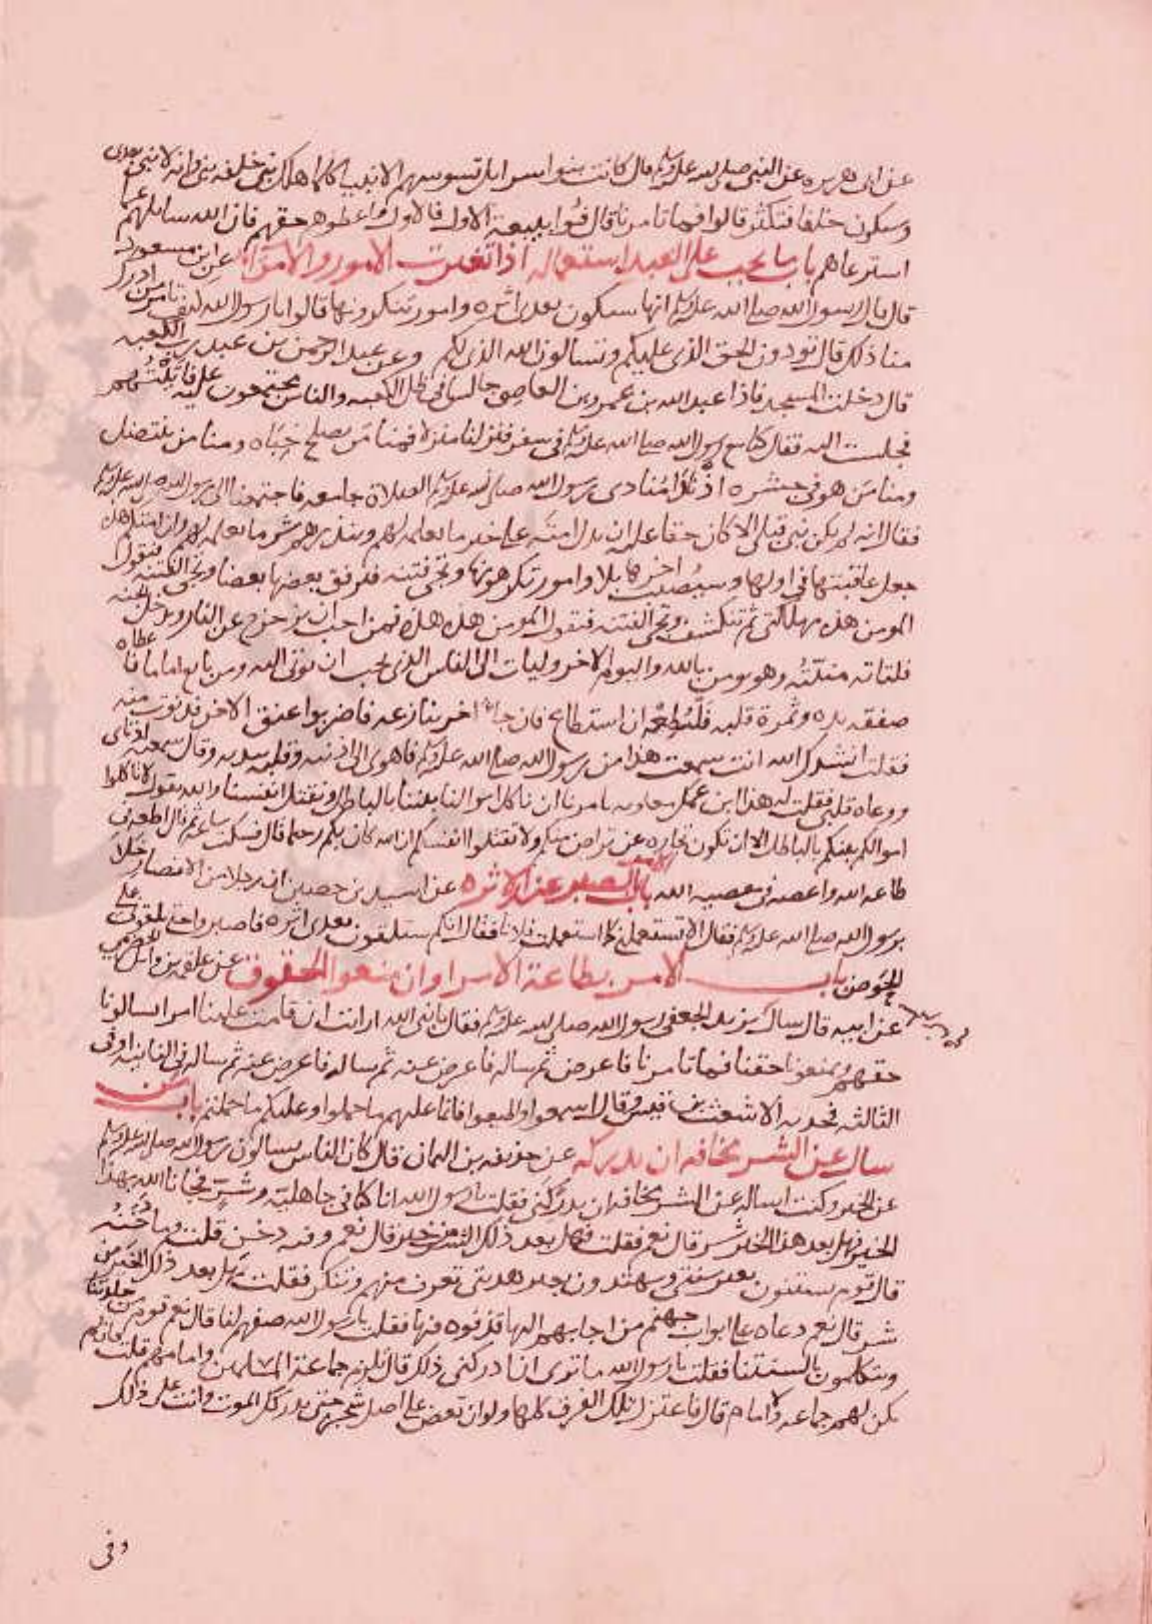 عن ابى هريره عن النبي صلى الله عليه وسلم قال كانت بنوا اسرايل تسوسهم الانبيا كلما هلك نبي خلفه نبي وانه لا نبي بعدى
وسيكون خلفا فتكثر قالوا فما تامرنا قال فُوا ببيعة الاول فالاول واعطوهم حقهم فان الله سايلهم عما
استرعاهم باب ما يجب على العبد استعماله اذا تغيرت الامور والامرا عن ابن مسعود
قال قال رسول الله صلى الله عليه وسلم انها ستكون بعدى اثره وامور تنكرونها قالوا يا رسول الله كيف تامر من ادرك
منا ذلك قال تودون الحق الذى عليكم وتسالون الله الذى لكم وعن عبد الرحمن بن عبد رب الكعبه
قال دخلت المسجد فاذا عبد الله بن عمرو بن العاص جالسا فى ظل الكعبه والناس مجتمعون عليه فاتيتهم
فجلست اليه فقال كنا مع رسول الله صلى الله عليه وسلم فى سفر فنزلنا منزلا فمنا من يصلح خباه ومنا من ينتضل
ومنا من هو فى جشره اذ نادا منادى رسول الله صلى الله عليه وسلم الصلاة جامعه فاجتمعنا الى رسول الله صلى الله عليه وسلم
فقال انه لم يكن نبي قبلى الا كان حقا عليه ان يدل امته على خير ما يعلمه لهم وينذرهم شر ما يعلمه لهم وان امتكم هذه
جعل عافيتها فى اولها وسيصيب اخرها بلا وامور تنكرونها وتجى فتنه فيرقق بعضها بعضا وتجى الفتنه فيقول
المومن هذه مهلكتى ثم تنكشف وتجى الفتنه فيقول المومن هذه هذه فمن احب ان يزحزح عن النار ويدخل الجنه
فلتاته منيّته وهو يومن بالله واليوم الاخر وليات الى الناس الذى يحب ان يوتى اليه ومن بايع اماما فاعطاه
صفقه يده وثمرة قلبه فليُطعه ان استطاع فان جا اخر ينازعه فاضربوا عنق الاخر فدنوت منه
فقلت انشدك الله انت سمعت هذا من رسول الله صلى الله عليه وسلم فاهوى الى اذنيه وقلبه بيديه وقال سمعته اذناى
ووعاه قلبى فقلت له هذا ابن عمك معاويه يامرنا ان ناكل اموالنا بيننا بالباطل ونقتل انفسنا والله يقول لا تاكلوا
اموالكم بينكم بالباطل الا ان تكون تجاره عن تراض منكم ولا تقتلوا انفسكم ان الله كان بكم رحيما قال فسكت ساعه ثم قال اطعه فى
طاعه الله واعصه فى معصيه الله باب الصبر عند الاثره عن اسيد بن حضير ان رجلا من الانصار خلا
برسول الله صلى الله عليه وسلم فقال الا تستعملنى كما استعملت فلانا فقال انكم ستلقون بعدى اثره فاصبروا حتى تلقونى على
الحوض باب الامر بطاعة الامرا وان منعوا الحقوق عن علقمه بن وائل الحضرمي
عن ابيه قال سال يزيد الجعفى رسول الله صلى الله عليه وسلم فقال يا نبى الله ارايت ان قامت علينا امرا يسالونا
حقهم ويمنعونا حقنا فما تامرنا فاعرض عنه ثم ساله فاعرض عنه ثم ساله فى الثانيه او فى
الثالثه فجذبه الاشعث بن قيس وقال اسمعوا واطيعوا فانما عليهم ما حملوا وعليكم ما حملتم باب من
سال عن الشر مخافه ان يدركه عن حذيفه بن اليمان قال كان الناس يسالون رسول الله صلى الله عليه وسلم
عن الخير وكنت اساله عن الشر مخافه ان يدركنى فقلت يا رسول الله انا كنا فى جاهليّة وشرّ فجانا الله بهذا
الخير فهل بعد هذا الخير شر قال نعم فقلت فهل بعد ذلك الشر من خير قال نعم وفيه دخن قلت وما دَخَنُه
قال قوم يستنون بغير سنتى ويهتدون بغير هديتى تعرف منهم وتنكر فقلت هل بعد ذلك الخير من
شر قال نعم دعاه على ابواب جهنم من اجابهم اليها قذفوه فيها فقلت يا رسول الله صفهم لنا قال نعم قوم من جلدتنا
ويتكلمون بالسنتنا فقلت يا رسول الله ما ترى ان ادركنى ذلك قال تلزم جماعة المسلمين وامامهم قلت فان لم
يكن لهم جماعه ولا امام قال فاعتزل تلك الفرق كلها ولو ان تعض على اصل شجرة حتى يدركك الموت وانت على ذلك
وفى